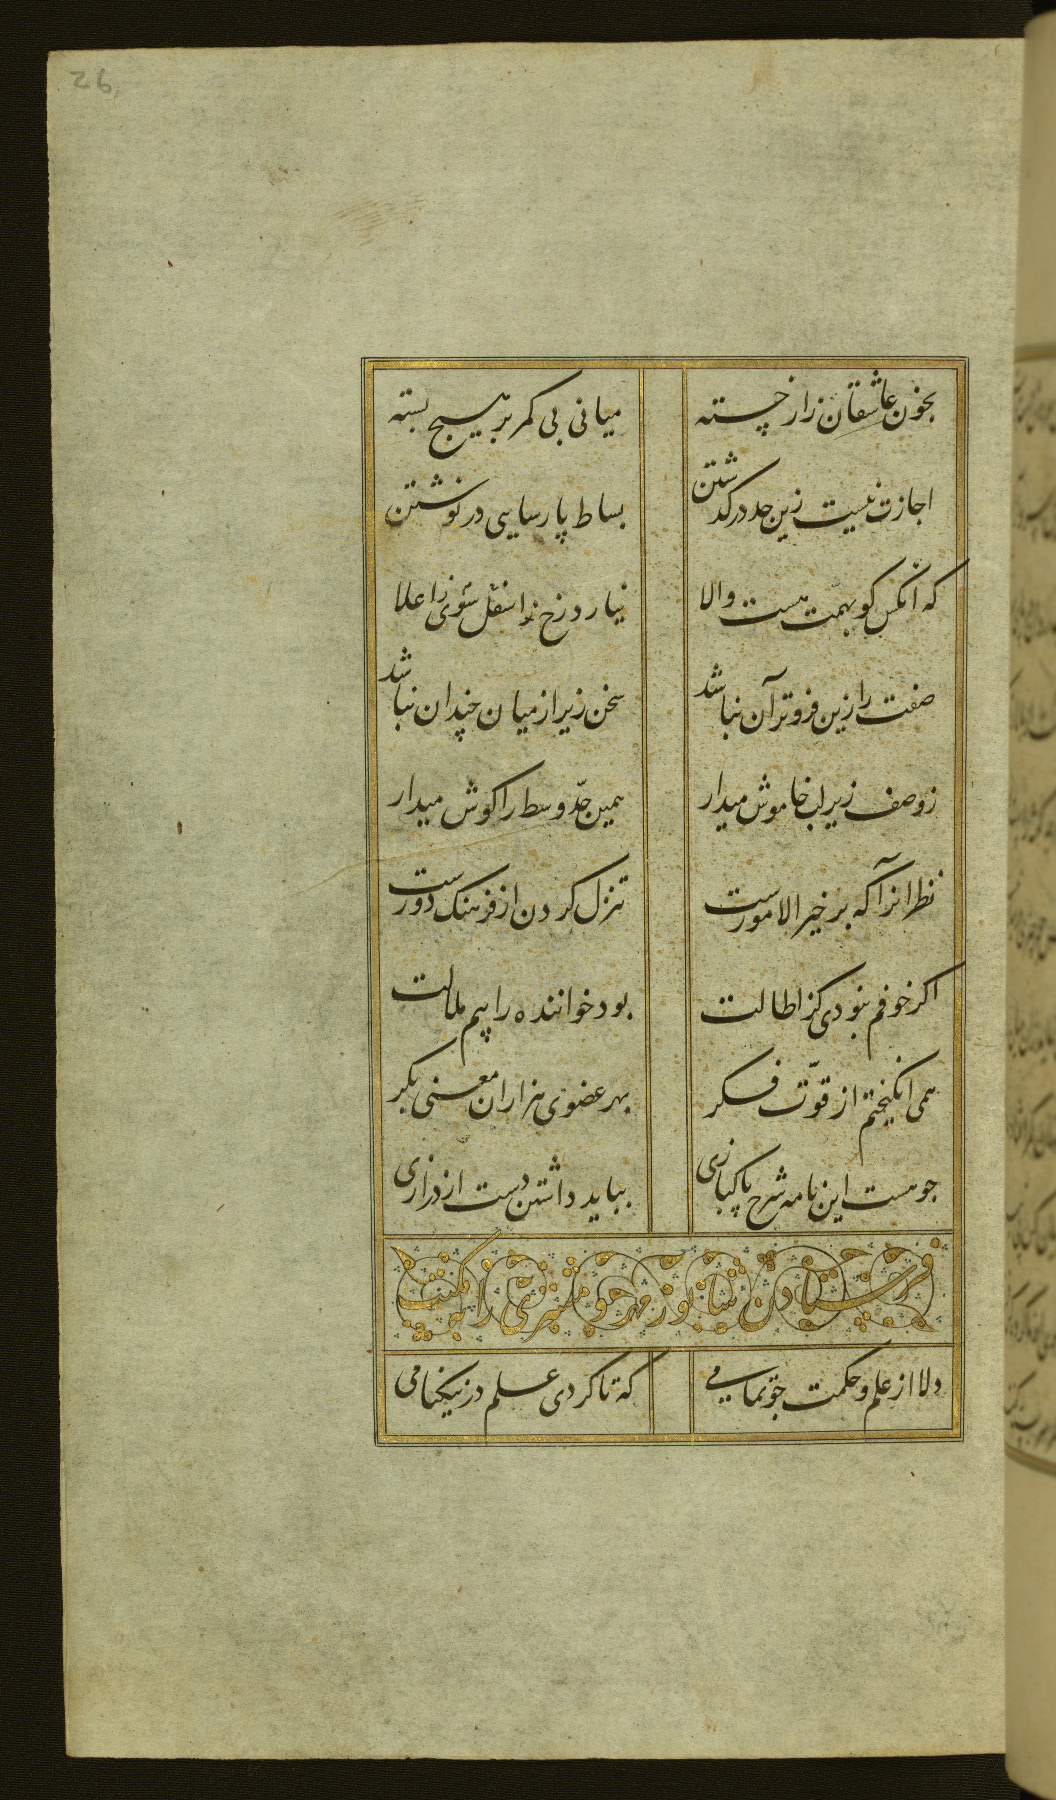 26
بخون عاشقان زار خسته میانی بی کمر بر هیچ بسته
اجازت نیست زین حد در کذشتن بساط پارسایی در نوشتن
که آنکس کو بهمت هست والا نیارد زخ ز اسفل سوی اعلا
صفت را زین فروتر آن نباشد سخن زیر از میان چندان نباشد
ز وصف زیر لب خاموش میدار همین حد وسط را کوش میدار
نظر انرا که بر خیر الامورست تنزل کردن از فرهنک دورست
اکر خوفم نبودی کز اطالت بود خواننده را بیم ملالت
همی انکیختم از قوّت فکر بهر عضوی هزاران معنی بکر
جو هست این نامه شرح پاکبازی بباید داشتن دست از درازی
فرستادن شابور مهر و مشتری را بمکتب
دلا از علم و حکمت جو تمامی که تا کردی علم در نیکنامی